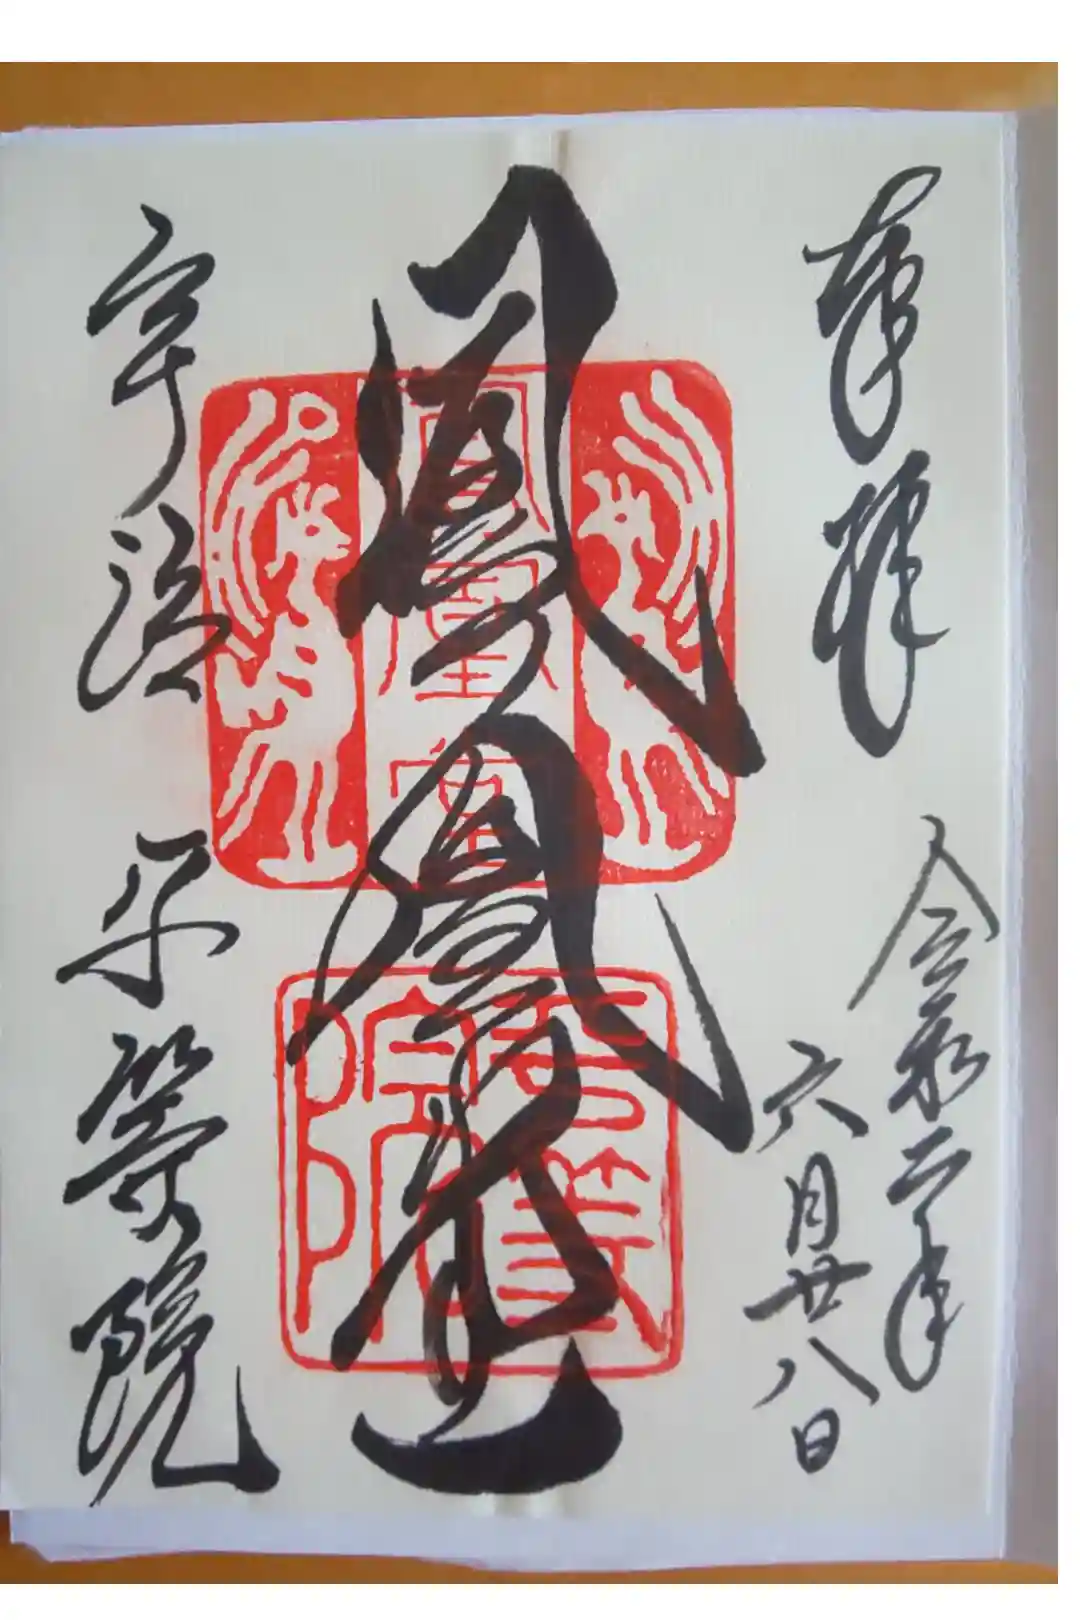 奉拝
令和二年
六月廿八日
鳳凰堂
宇治
平等院
鳳凰堂
平等院